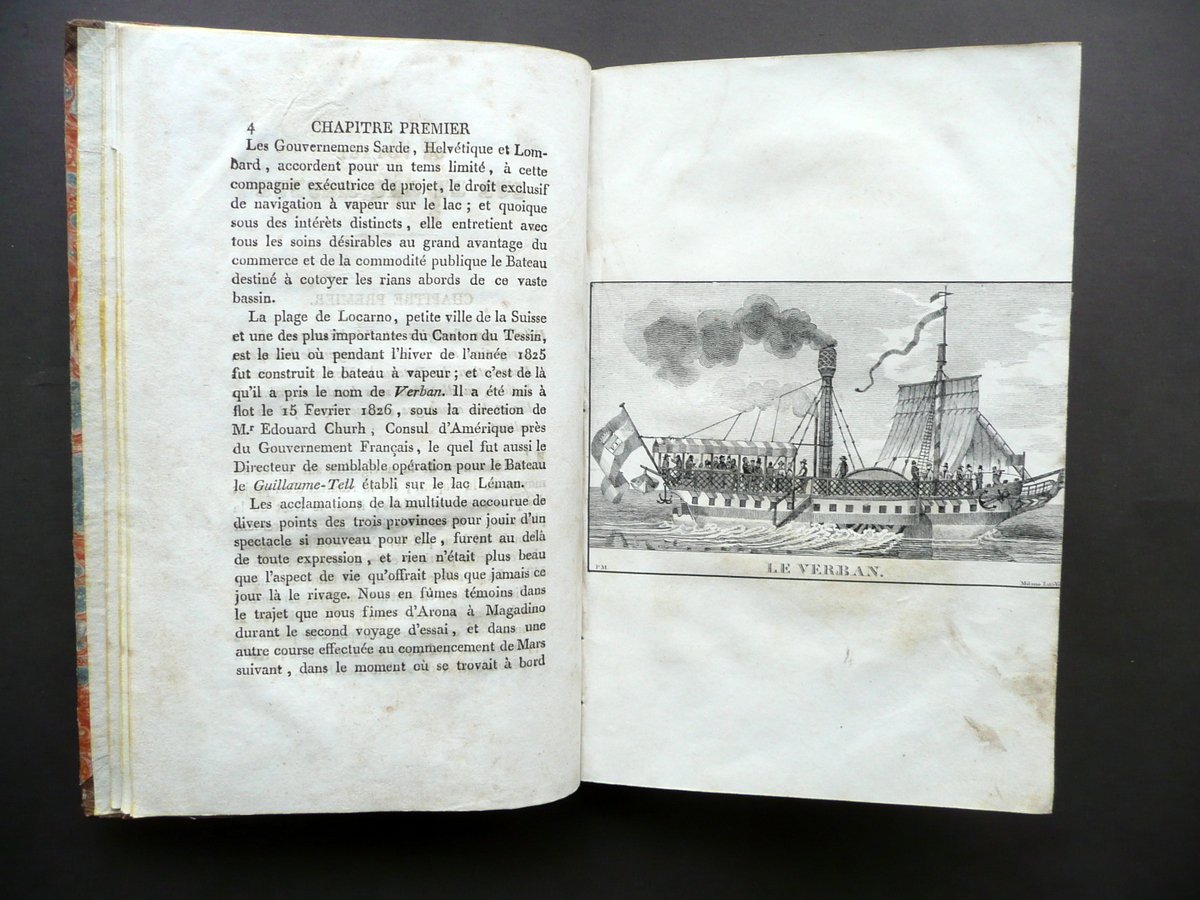 4 CHAPITRE PREMIER
Les Gouvernemens Sarde, Helvétique et Lom-
bard, accordent pour un tems limité, à cette
compagnie exécutrice de projet, le droit exclusif
de navigation à vapeur sur le lac; et quoique
sous des intérèts distincts, elle entretient avec
tous les soins désirables au grand avantage du
commerce et de la commodité publique le Bateau
destiné à cotoyer les rians abords de ce vaste
bassin.
La plage de Locarno, petite ville de la Suisse
et une des plus importantes du Canton du Tessin,
est le lieu où pendant l'hiver de l'année 1825
fut construit le bateau à vapeur; et c'est de là
qu'il a pris le nom de Verban. Il a été mis à
flot le 15 Fevrier 1826, sous la direction de
M.r Edouard Churh, Consul d'Amérique près
du Gouvernement Français, le quel fut aussi le
Directeur de semblable opération pour le Bateau
le Guillaume-Tell établi sur le lac Léman.
Les acclamations de la multitude accourue de
divers points des trois provinces pour jouir d'un
spectacle si nouveau pour elle, furent au delà
de toute expression, et rien n'était plus beau
que l'aspect de vie qu'offrait plus que jamais ce
jour là le rivage. Nous en fûmes témoins dans
le trajet que nous fimes d'Arona à Magadino
durant le second voyage d'essai, et dans une
autre course effectuée au commencement de Mars
suivant, dans le moment où se trovait à bord
P.M.
LE VERBAN.
Milano